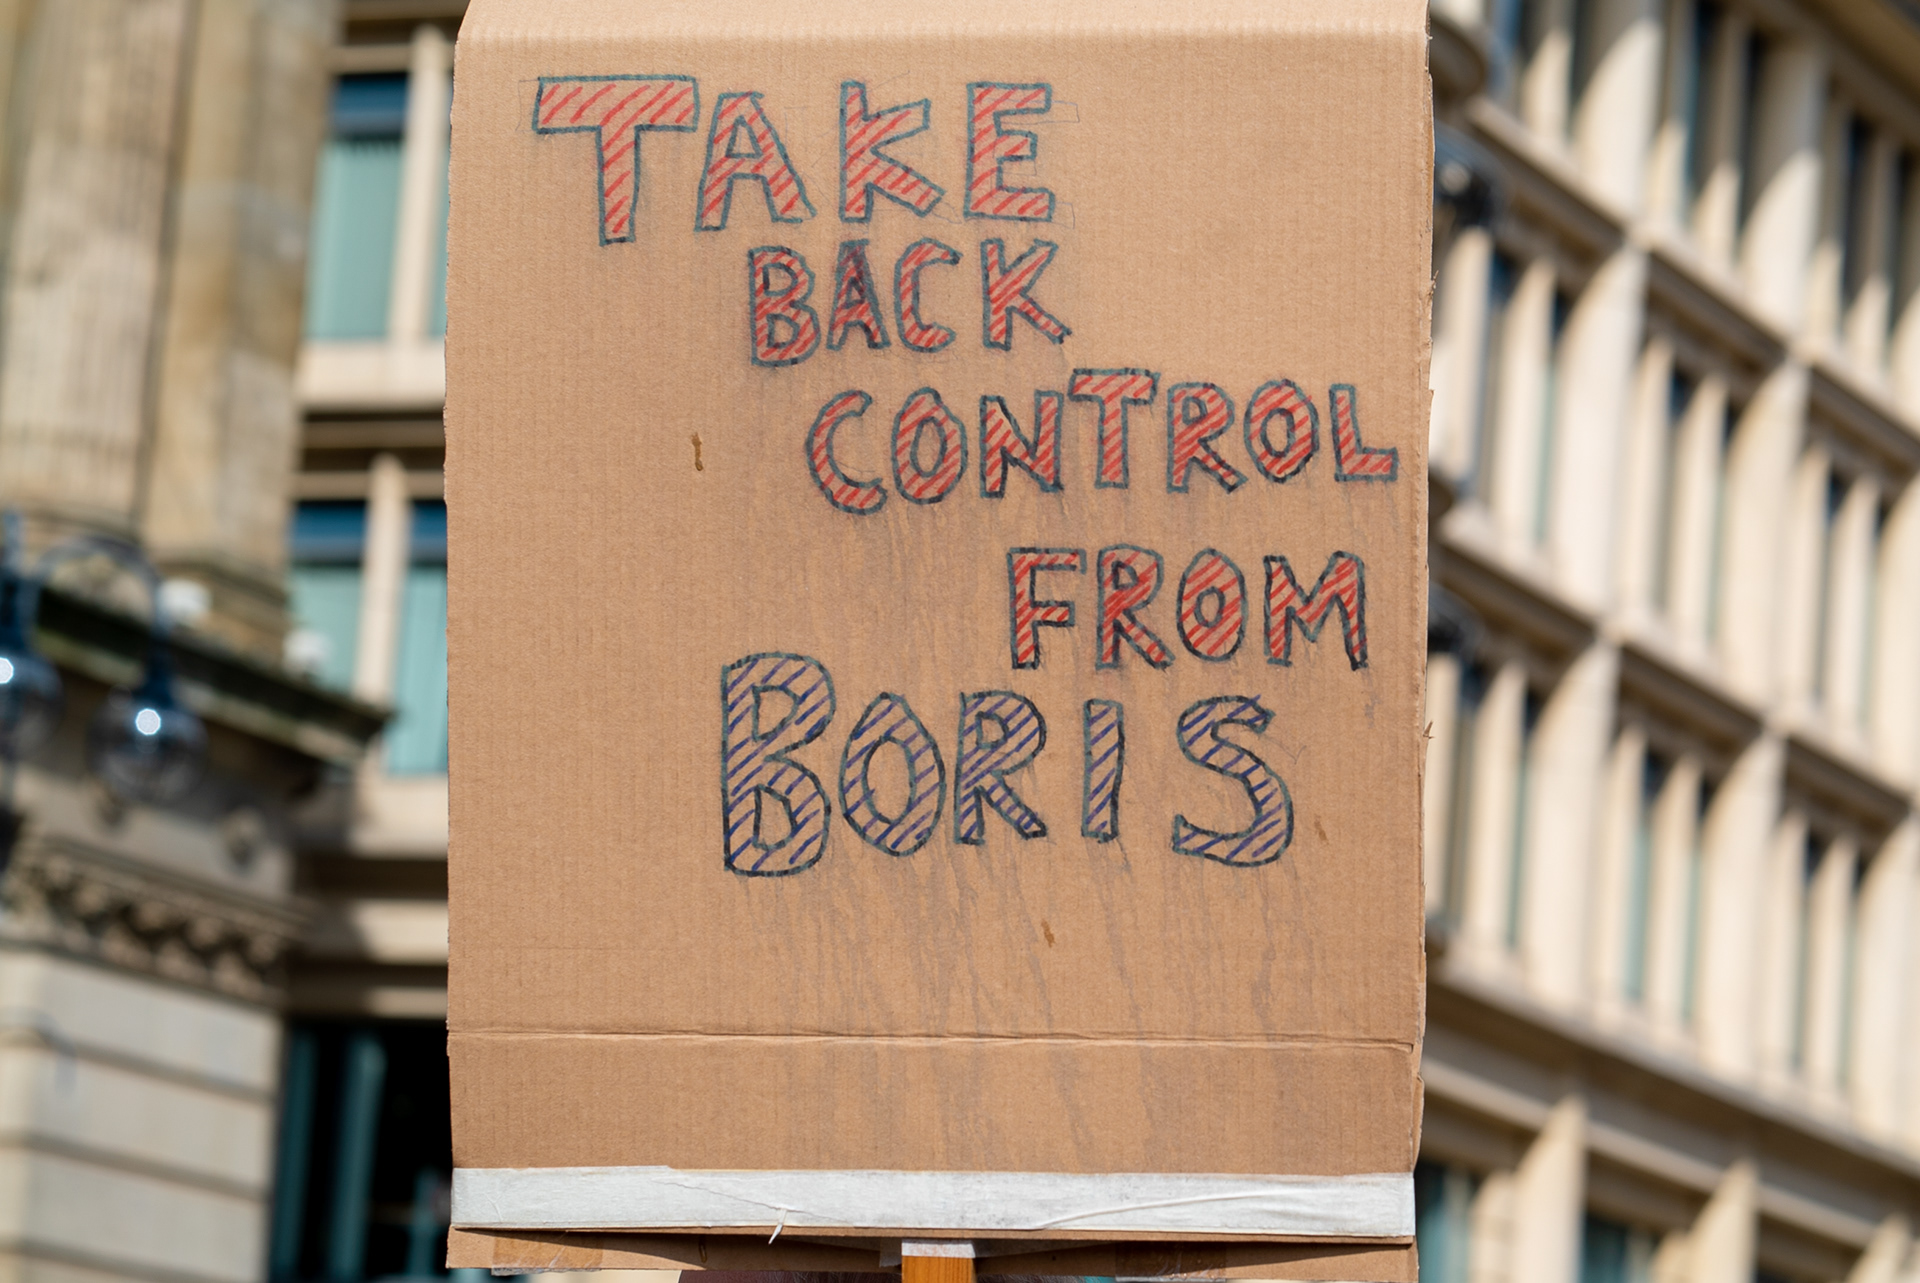 TAKE
BACK
CONTROL
FROM
BORIS